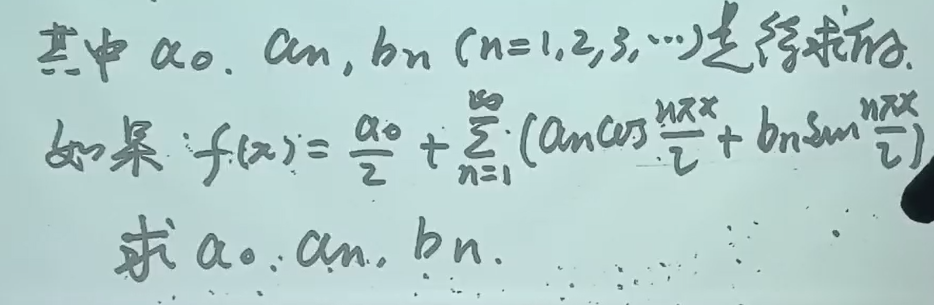 其中 a₀. aₙ, bₙ (n=1,2,3,…)是待求的.
如果 f(x)= a₀/2 + ∑_{n=1}^{∞} (aₙcos nπx/l + bₙsin nπx/l)
求 a₀. aₙ. bₙ.